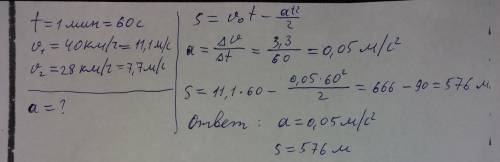 t = 1 мин = 60 с
v₁ = 40 км/г = 11,1 м/с
v₂ = 28 км/г = 7,7 м/с
a = ?
S = v₀t - at²/2
a = Δv/Δt = 3,3/60 = 0,05 м/с²
S = 11,1 · 60 - 0,05·60²/2 = 666 - 90 = 576 м.
Ответ: a = 0,05 м/с²
S = 576 м